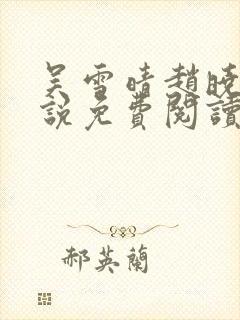 吴雪晴趙曉
說免費閱讀
郝英蘭